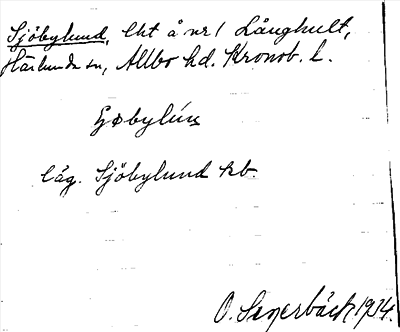 Sjöbylund, lht å nr 1 Långhult,
Härlunda sn, Allbo hd. Kronob. l.
låg. Sjöbylund kb.
O. 1934.